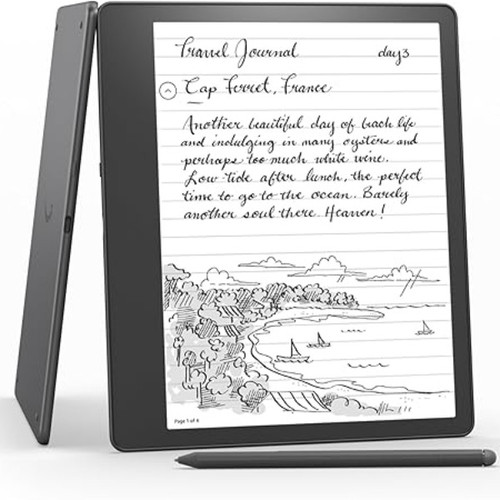 Travel Journal day3
Cap Ferret, France
Another beautiful day of beach life
and indulging in many oysters and
perhaps too much white wine.
Low tide after lunch, the perfect
time to go to the ocean. Barely
another soul there. Heaven!
Page 1 of 6